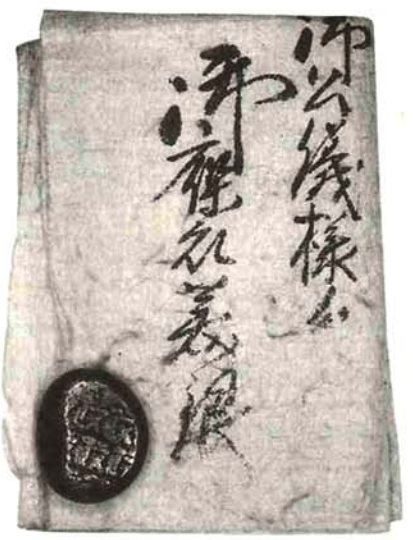 御公儀様ゟ
御褒美銀